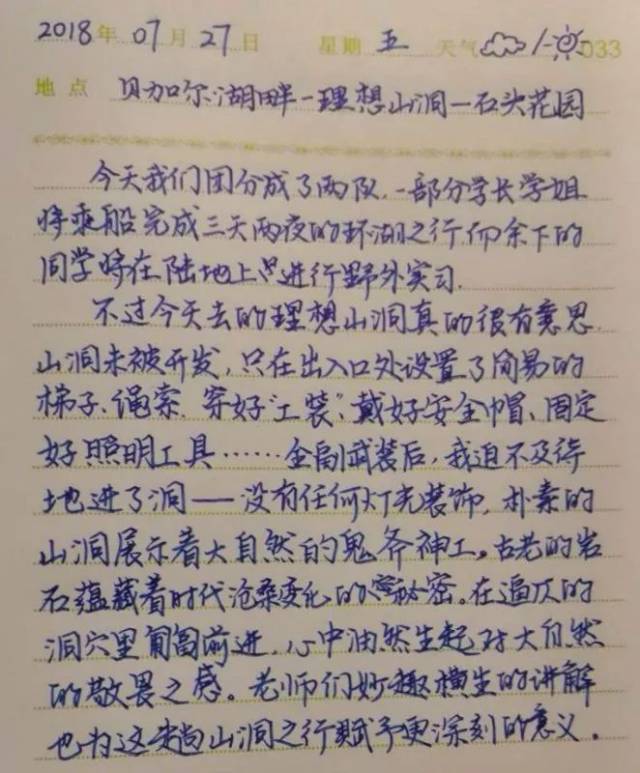 2018年 07月 27日 星期 五 天气 / 033
地点 贝加尔湖畔-理想山洞-石头花园
今天我们团分成了两队,一部分学长学姐
将乘船完成三天两夜的环湖之行,而余下的
同学将在陆地上进行野外实习.
不过今天去的理想山洞真的很有意思.
山洞未被开发,只在出入口处设置了简易的
梯子、绳索.穿好“工装”、戴好安全帽、固定
好照明工具……全副武装后,我迫不及待
地进了洞——没有任何灯光装饰,朴素的
山洞展示着大自然的鬼斧神工。古老的岩
石蕴藏着时代沧桑变化的秘密。在逼仄的
洞穴里匍匐前进,心中油然生起对大自然
的敬畏之感。老师们妙趣横生的讲解
也为这趟山洞之行赋予更深刻的意义.